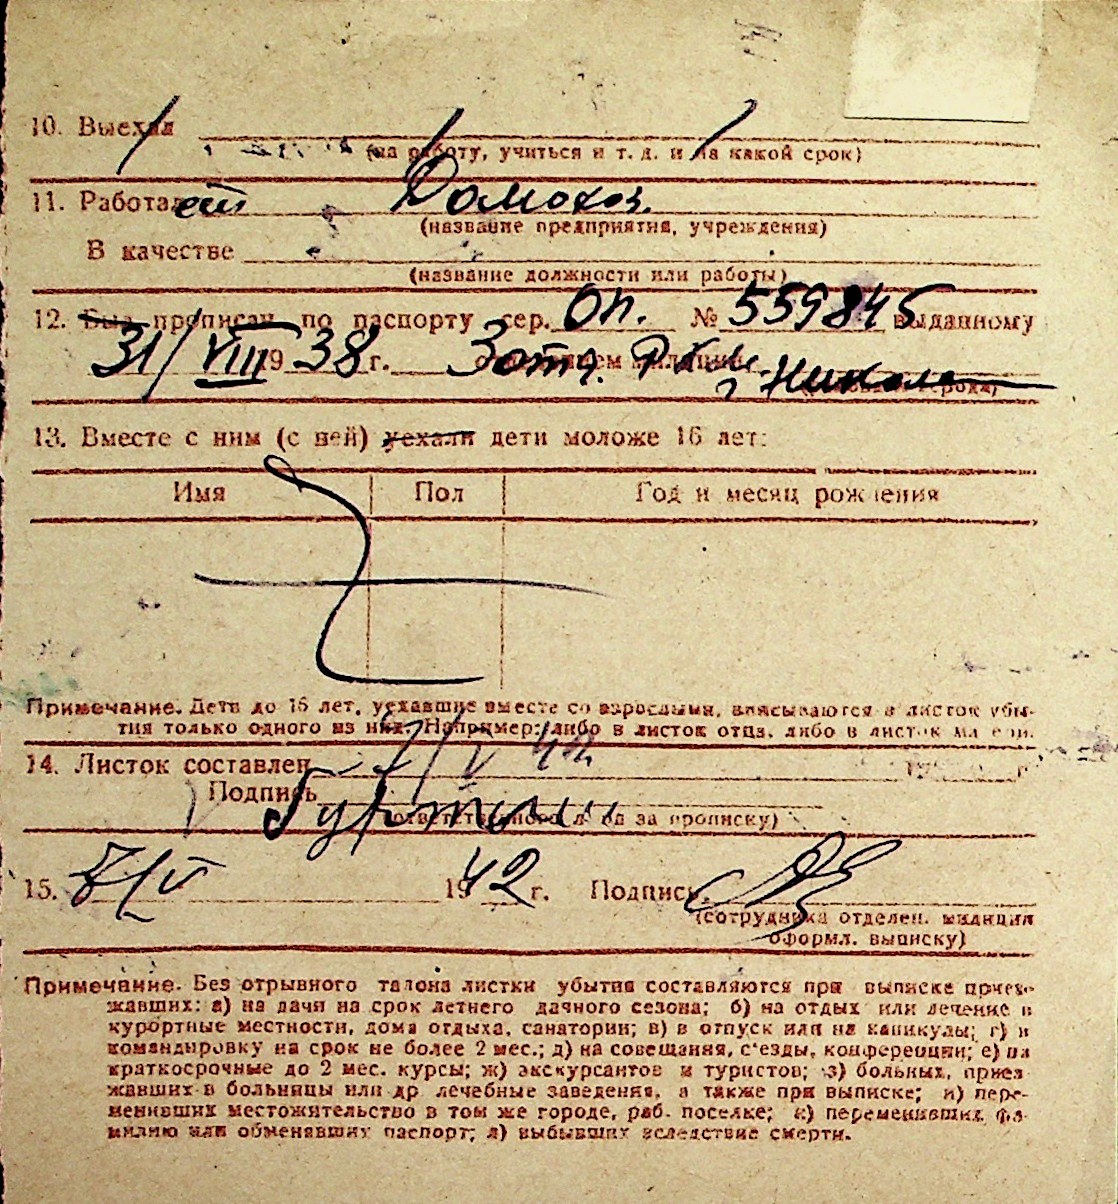 10. Выехал
(на работу, учиться и т. д. и на какой срок)
11. Работает Домохоз.
(название предприятия, учреждения)
В качестве
(название должности или работы)
12. Был прописан по паспорту сер. ОП. № 559845 выданному
31/VIII 1938 г. 3 отд. РКМ
г. Никола
13. Вместе с ним (с ней) уехали дети моложе 16 лет:
Имя Пол Год и месяц рождения
Примечание. Дети до 16 лет, уехавшие вместе со взрослыми, вписываются в листок убы-
тия только одного из них. Например: либо в листок отца, либо в листок матери.
14. Листок составлен 7/V 42
Подпись
(ответственного за прописку)
15. 7/V 1942 г. Подпись
(сотрудника отделен. милиции
оформл. выписку)
Примечание. Без отрывного талона листки убытия составляются при выписке приез-
жавших: а) на дачи на срок летнего дачного сезона; б) на отдых или лечение в
курортные местности, дома отдыха, санатории; в) в отпуск или на каникулы; г) в
командировку на срок не более 2 мес.; д) на совещания, с'езды, конференции; е) на
краткосрочные до 2 мес. курсы; ж) экскурсантов и туристов; з) больных, приез
жавших в больницы или др лечебные заведения, а также при выписке; и) пере-
менивших местожительство в том же городе, раб. поселке; к) переменивших фа-
милию или обменявших паспорт; л) выбывших вследствие смерти.